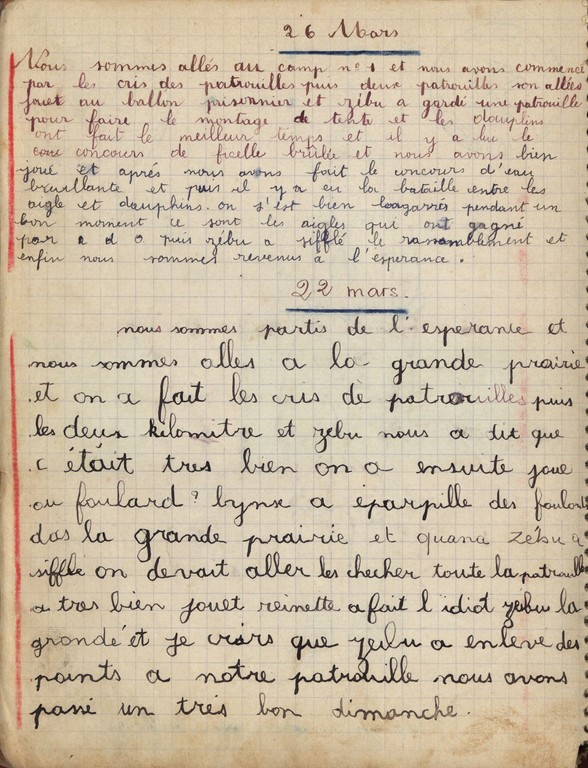 26 Mars
Nous sommes allés au camp n° 1 et nous avons commencé
par les cris des patrouilles puis deux patrouilles son allées
jouet au ballon prisonnier et zébu a gardé une patrouille
pour faire le montage de tente et les dauphins
ont fait le meilleur temps et il y a hu le
concours de ficelle brulée et nous avons bien
joué et aprés nous avons fait le concours d'eau
bouillante et puis il y a eu la bataille entre les
aigle et dauphins. on s'est bien bagarrés pendant un
bon moment ce sont les aigles qui ont gagné
par 2 d 0 puis zébu a sifflé le rassemblement et
enfin nous sommes revenus à l'esperance.
22 mars.
nous sommes partis de l'esperance et
nous sommes alles a la grande prairie
et on a fait les cris de patrouilles puis
les deux kilomitre et zebu nous a dit que
c était tres bien on a ensuite joue
au foulard ? bynx a éparpille des foulard
das la grande prairie et quand zébu a
sifflé on devait aller les checher toute la patrouille
a tres bien jouet reinette a fait l idiot zebu la
grondé et je crois que zebu a enleve des
points a notre patrouille nous avons
passé un trés bon dimanche.